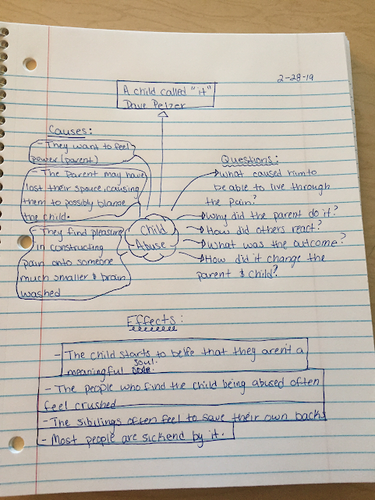 2-28-19
A child called "it"
Dave Pelzer
Causes:
- They want to feel
power (parent)
- The Parent may have
lost their spouce, causing
them to possibly blame
the child.
- They find pleasing
in constructing
pain onto someone
much smaller & brain
washed
Child
Abuse
Questions:
what caused him to
be able to live through
the pain?
Why did the parent do it?
How did others react?
What was the outcome?
How did it change the
parent & child?
Effects:
- The child starts to belfe that they arent a
meaningful soul.
- The people who find the child being abused often
feel crushed
- The sibilings often feel to save their own backs
- Most people are sickend by it.